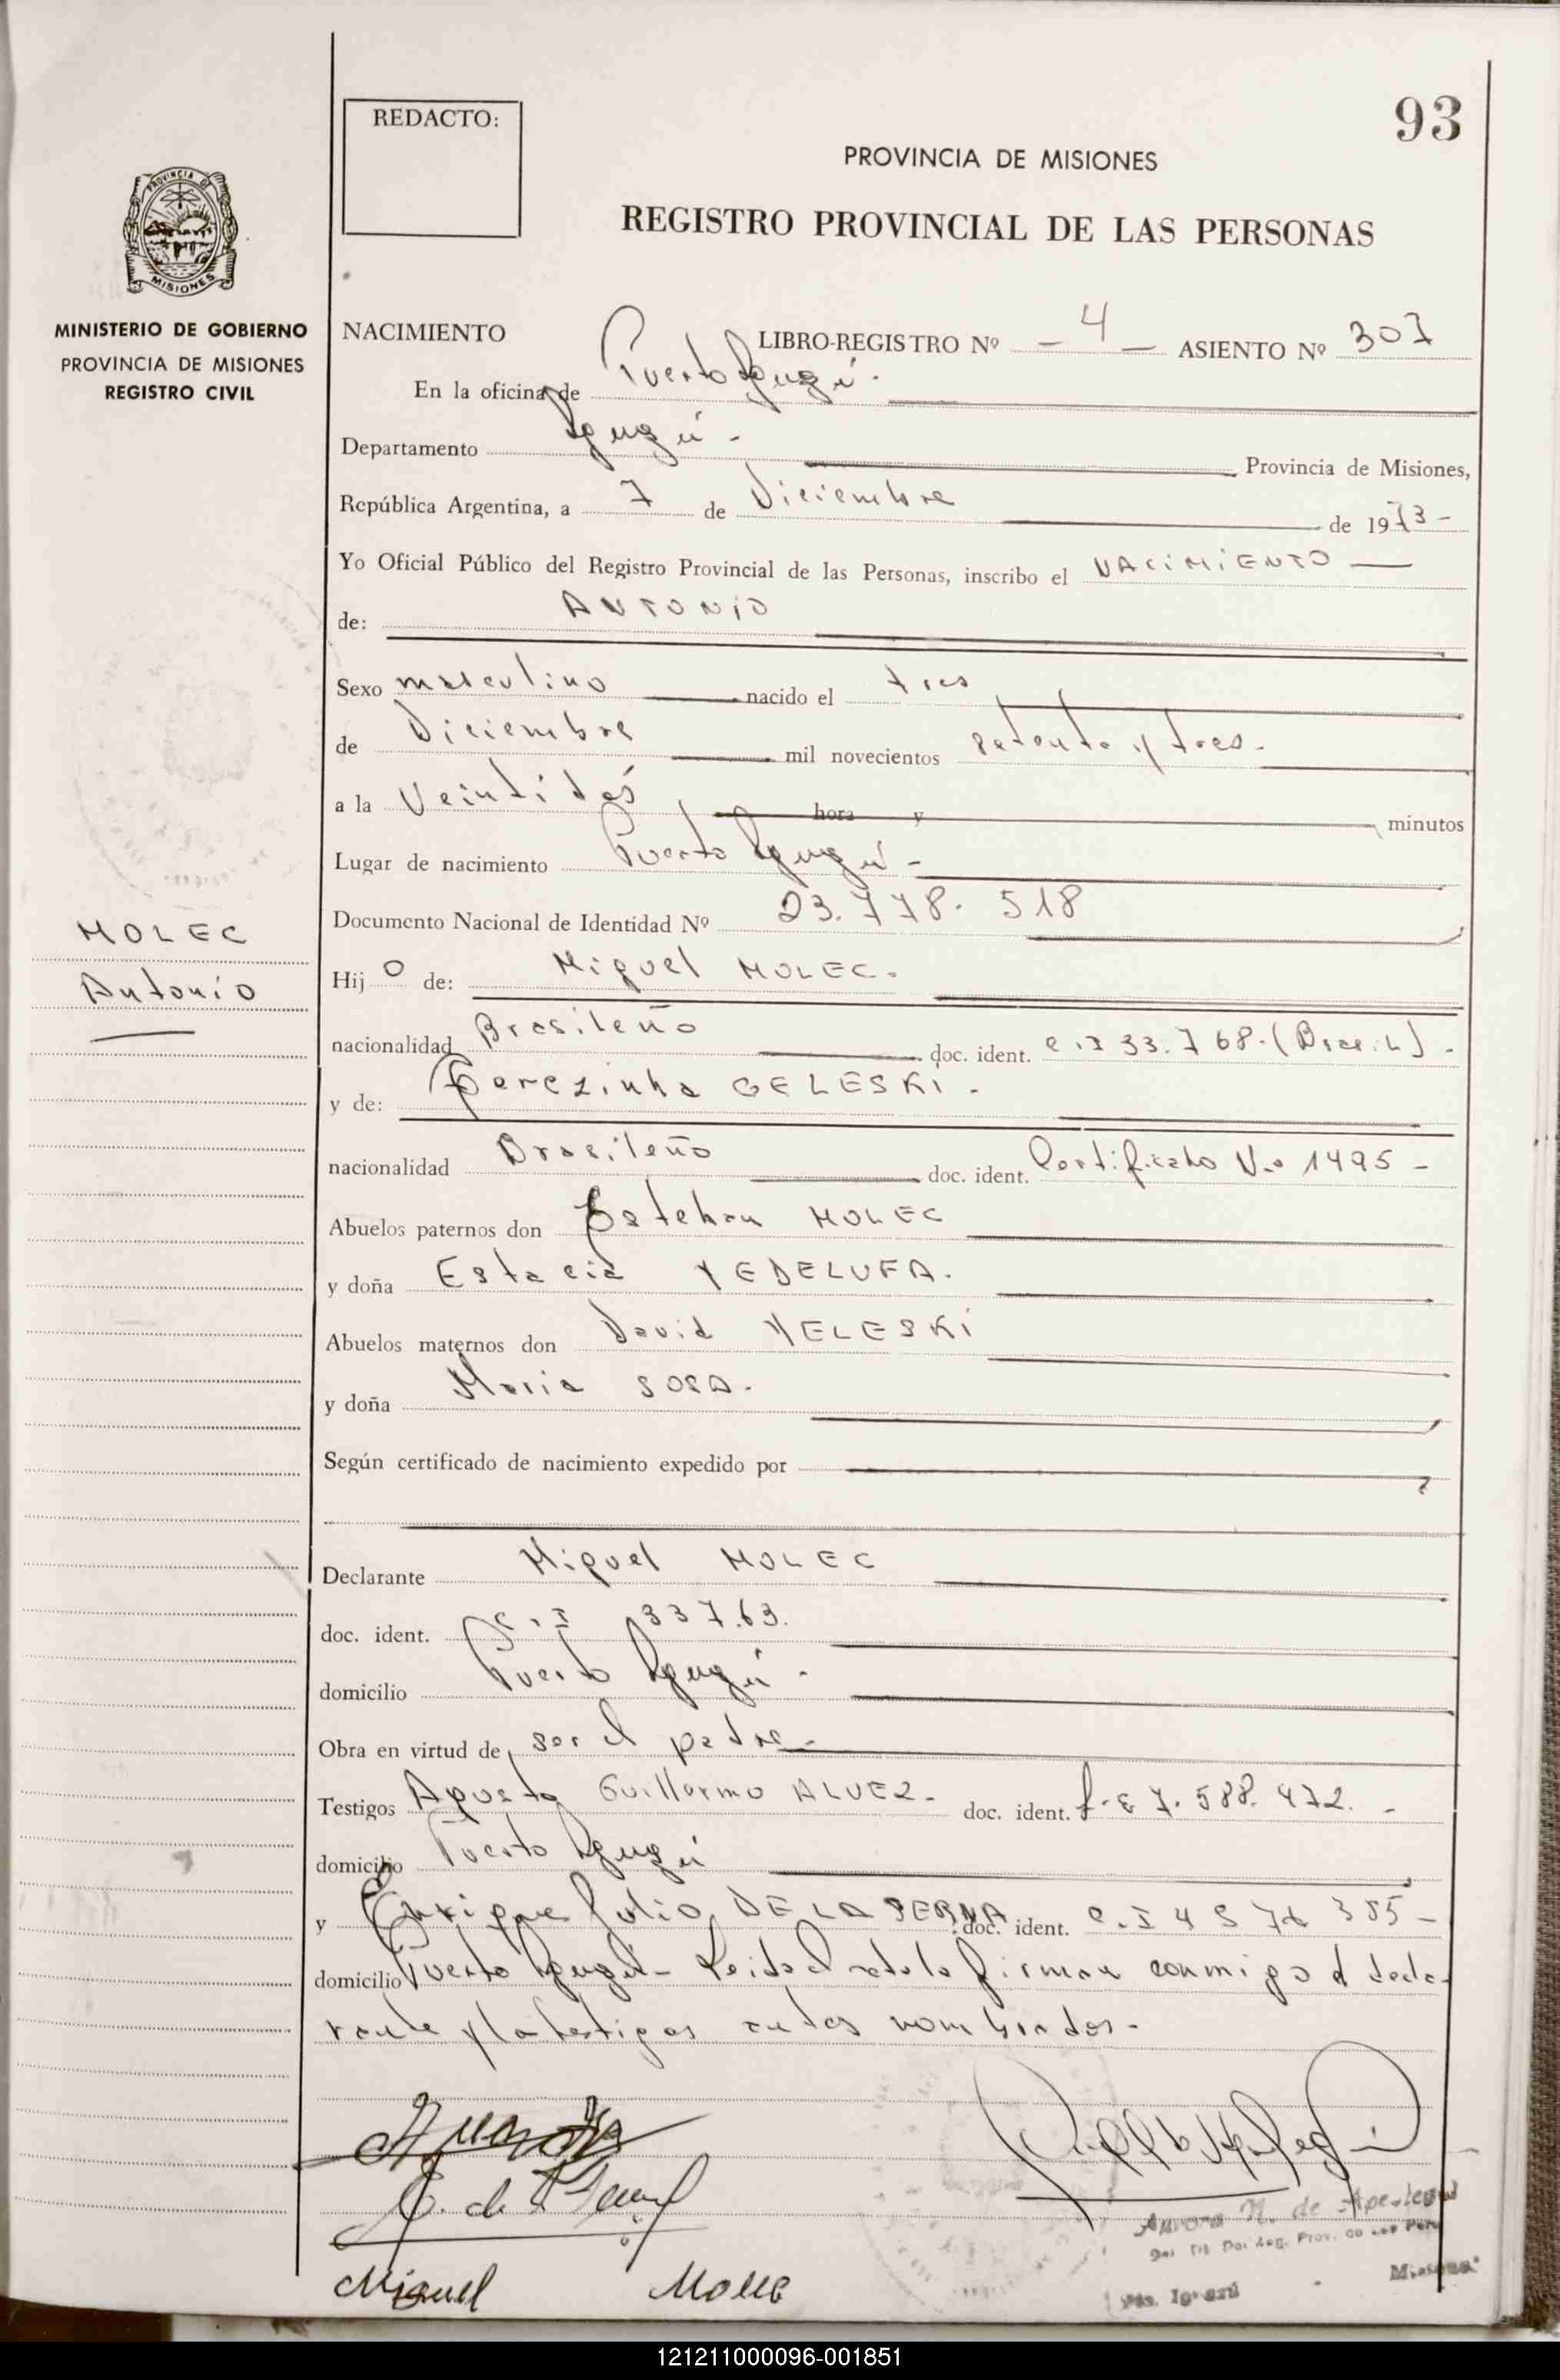 93
REDACTO:
PROVINCIA DE MISIONES
REGISTRO PROVINCIAL DE LAS PERSONAS
PROVINCIA DE
MISIONES
MINISTERIO DE GOBIERNO
PROVINCIA DE MISIONES
REGISTRO CIVIL
NACIMIENTO LIBRO-REGISTRO Nº - 4 - ASIENTO Nº 307
En la oficina de Puerto Iguazú.
Departamento Iguazú - Provincia de Misiones,
República Argentina, a 7 de Diciembre de 1973-
Yo Oficial Público del Registro Provincial de las Personas, inscribo el NACIMIENTO
de: ANTONIO
Sexo masculino nacido el tres
de Diciembre mil novecientos setenta y tres.
a la Veintidós hora y minutos
Lugar de nacimiento Puerto Iguazú -
Documento Nacional de Identidad Nº 23.778.518
MOLEC
Antonio
Hijo de: Miguel MOLEC.
nacionalidad Brasileño doc. ident. C.I 33.768.(Brasil).
y de: Terezinha GELESKI.
nacionalidad Brasileño doc. ident. Certificado N.o 1495-
Abuelos paternos don Esteban MOLEC
y doña Estacia YEDELUFA.
Abuelos maternos don David YELESKI
y doña Maria SOSA.
Según certificado de nacimiento expedido por
Declarante Miguel MOLEC
doc. ident. C.I 337.63.
domicilio Puerto Iguazú.
Obra en virtud de ser el padre-
Testigos Agusto Guillermo ALVEZ. doc. ident. L.E 7.588.472. -
domicilio Puerto Iguazú
y Enrique Julio DE LA SERNA doc. ident. C.I
domicilio Puerto Iguazú- Leida el acta la firman conmigo el decla-
rante y los testigos antes nombrados-
Miguel Molec
Aurora N. de
Pto. Iguazú Misiones
121211000096-001851